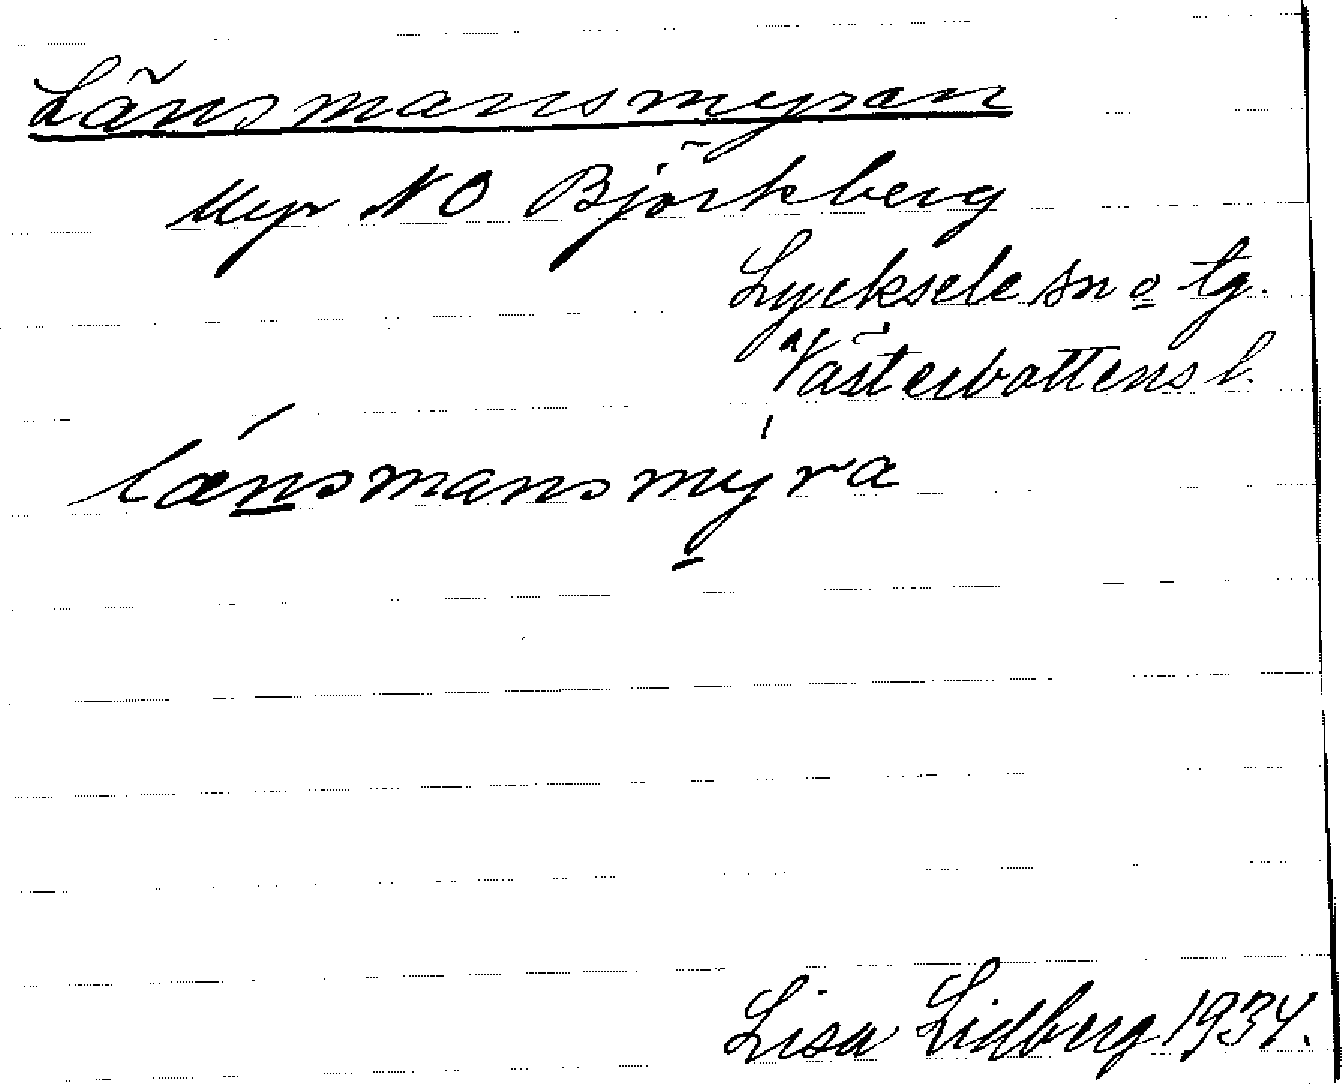 Länsmansmyren
Myr NO Björkberg
Lycksele sn o tg.
Västerbottens l.
lænsmansmyra
Lisa Lidberg 1934.